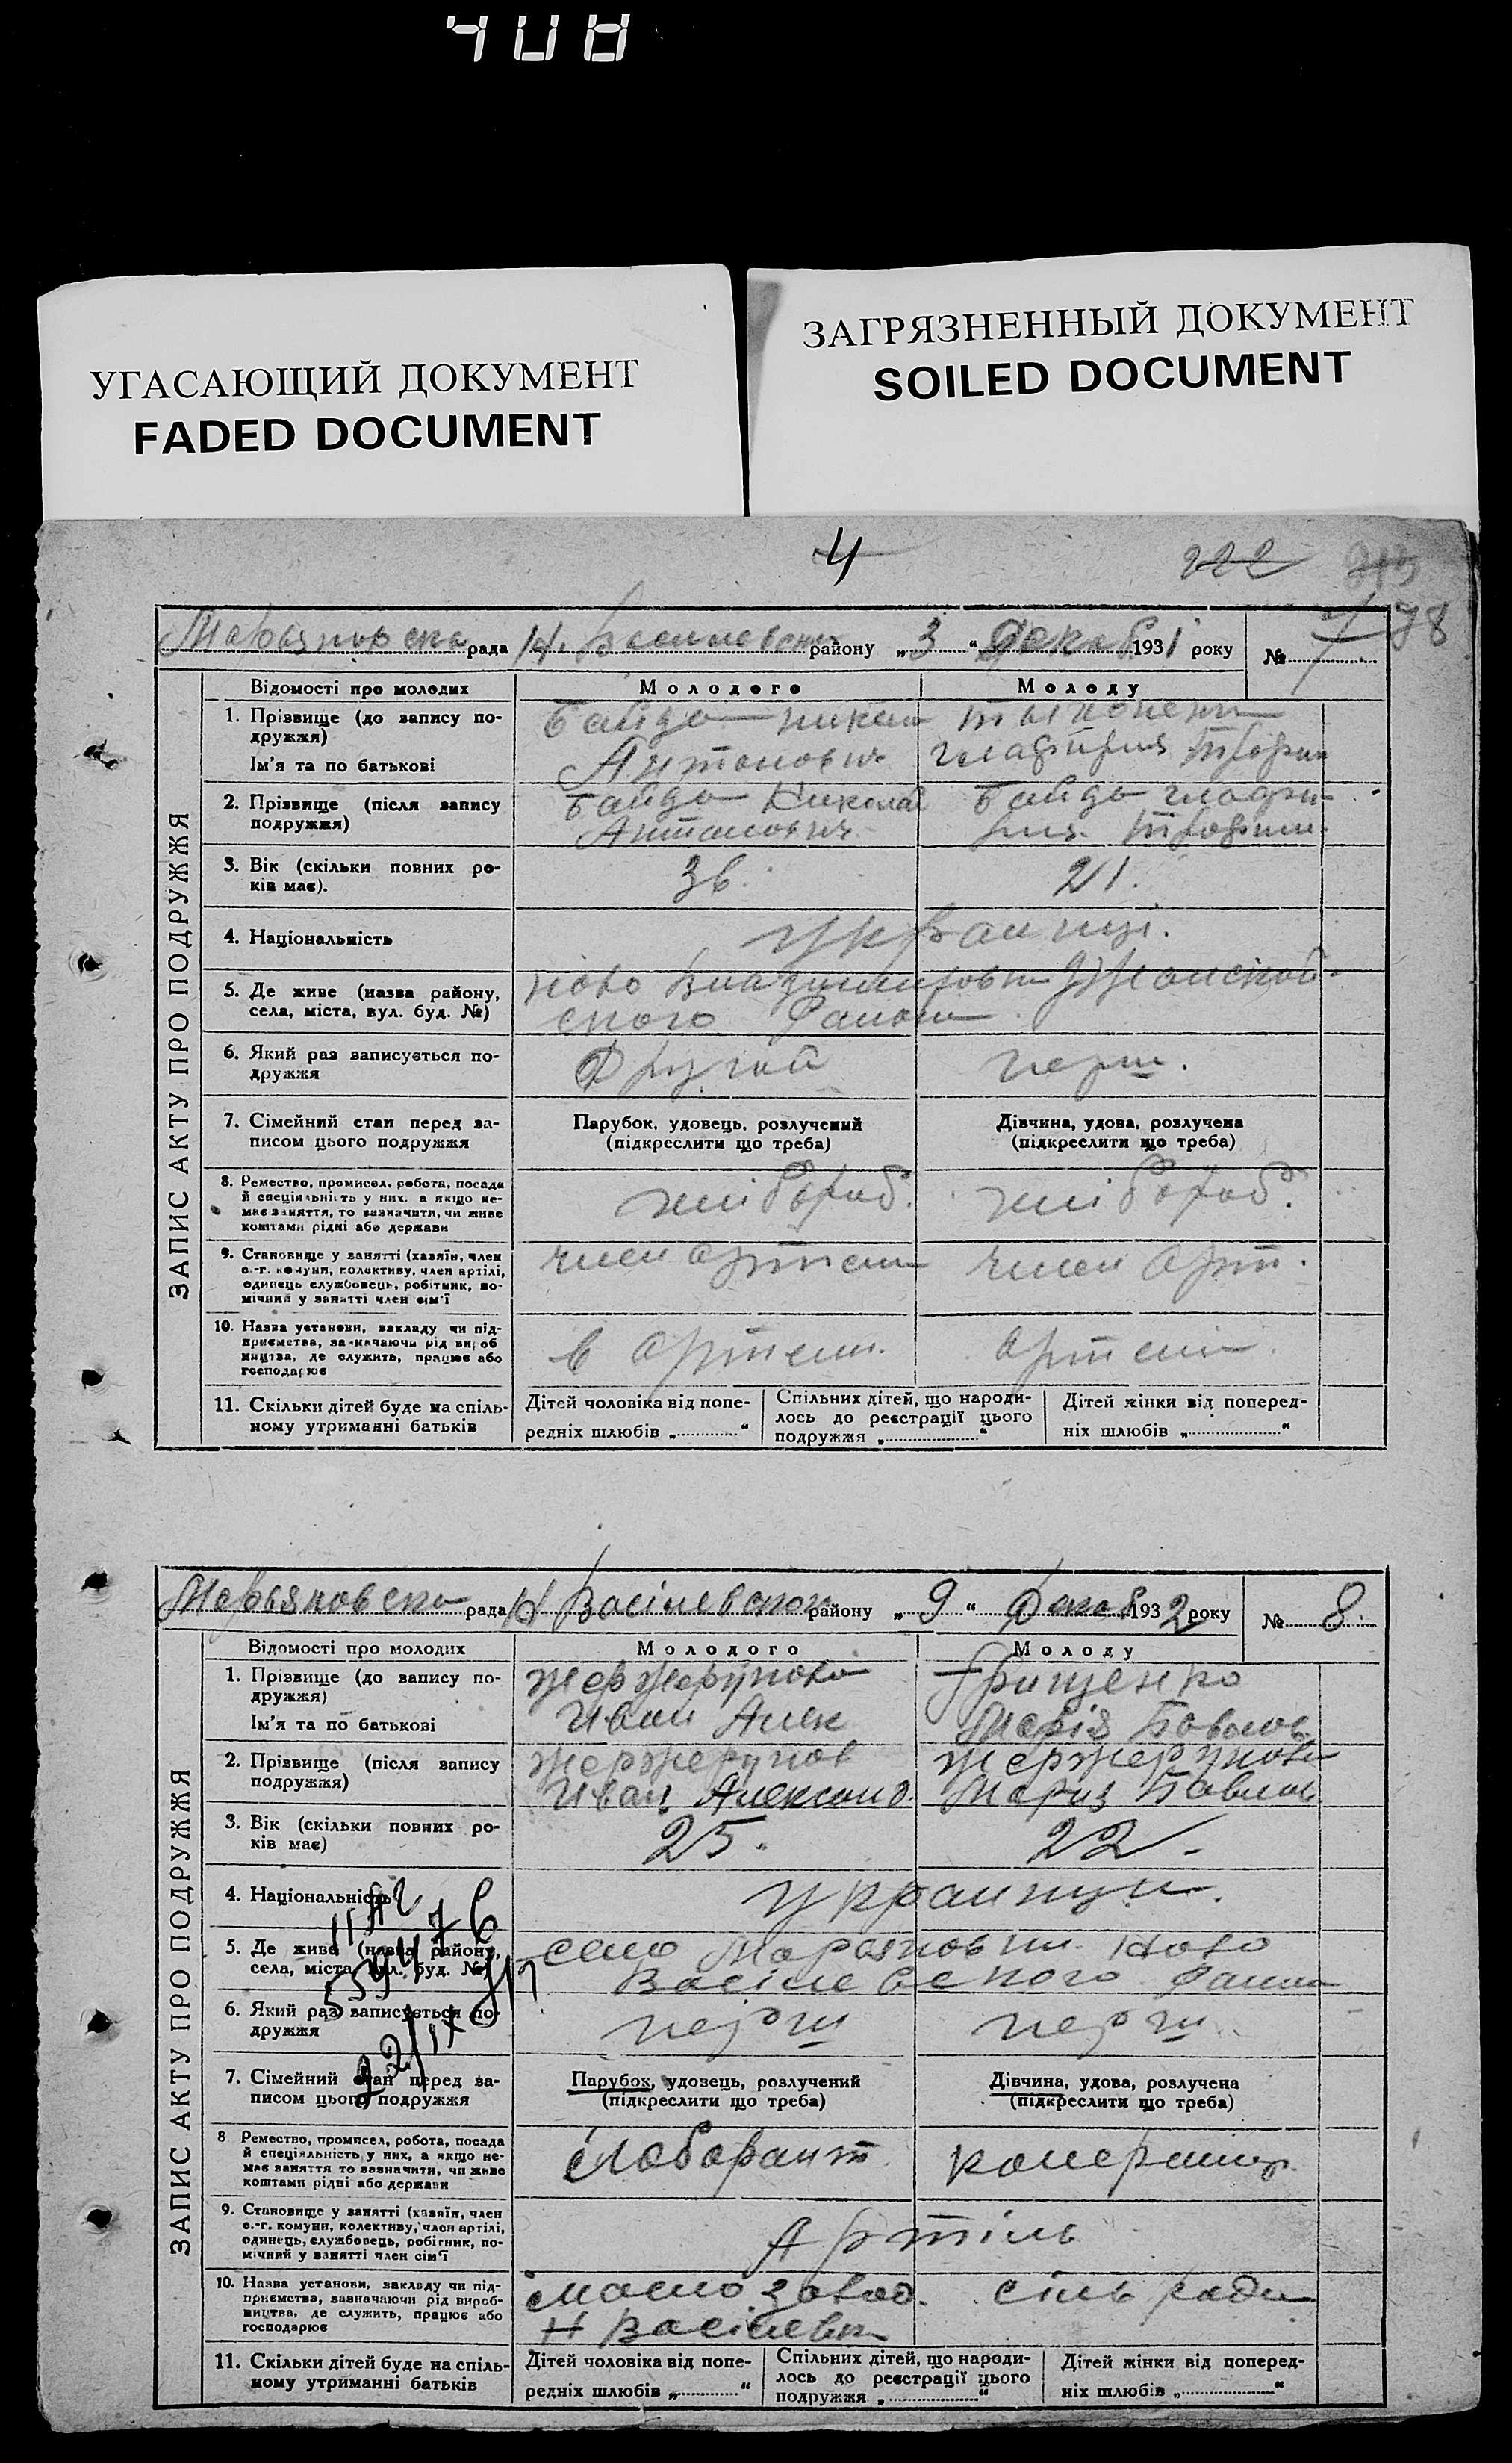 408
УГАСАЮЩИЙ ДОКУМЕНТ
FADED DOCUMENT
ЗАГРЯЗНЕННЫЙ ДОКУМЕНТ
SOILED DOCUMENT
4
222
78
Марьяновска рада Н. Василевского району „3“ Декаб 1931 року № 7
ЗАПИС АКТУ ПРО ПОДРУЖЖЯ
Відомості про молодих Молодого Молоду
1. Прізвище (до запису по-
дружжя)
Ім'я та по батькові
Байда Никол
Антонович
Глафирия Трофим
2. Прізвище (після запису
подружжя)
Байда Николай
Антонович
Байда Глафи-
рия Трофим.
3. Вік (скільки повних ро-
ків має).
36. 21.
4. Національність
Українці.
5. Де живе (назва району,
села, міста, вул. буд. №)
Ново
ского Раиона
6. Який раз записується по-
дружжя
Другой перш.
7. Сімейний стан перед за-
писом цього подружжя
Парубок, удовець, розлучений
(підкреслити що треба)
Дівчина, удова, розлучена
(підкреслити що треба)
8. Ремество, промисел, робота, посада
й спеціяльність у них, а якщо не-
має заняття, то зазначити, чи живе
коштами рідні або держави
хлібороб. хлібороб.
9. Становище у занятті (хазяїн, член
с.-г. комуни, колективу, член артілі,
одинець службовець, робітник, по-
мічний у занятті член сім'ї
член артели член арт.
10. Назва установи, закладу чи під-
приємства, зазначаючи рід вироб
ництва, де служить, працює або
господарює
в артели. артели.
11. Скільки дітей буде на спіль-
ному утриманні батьків
Дітей чоловіка від попе-
редніх шлюбів „ “
Спільних дітей, що народи-
лось до реєстрації цього
подружжя „ “
Дітей жінки від поперед-
ніх шлюбів „ “
Марьяновска рада Н Васілевском району „9“ Декаб 1932 року № 8.
ЗАПИС АКТУ ПРО ПОДРУЖЖЯ
Відомості про молодих Молодого Молоду
1. Прізвище (до запису по-
дружжя)
Ім'я та по батькові
Иван Алек
Грищенко
Марія Павлов
2. Прізвище (після запису
подружжя)
Жержерунов
Иван Александ.
Жержерунова
Мария Павлов
3. Вік (скільки повних ро-
ків має)
25. 22.
4. Національність
Украинци.
5. Де живе (назва району,
села, міста, вул. буд. №)
село Марьяновки Ново
Васілевского Раиона
6. Який раз записується по-
дружжя
перш перш.
7. Сімейний стан перед за-
писом цього подружжя
Парубок, удовець, розлучений
(підкреслити що треба)
Дівчина, удова, розлучена
(підкреслити що треба)
8 Ремество, промисел, робота, посада
й спеціяльність у них, а якщо не-
має заняття то зазначити, чи живе
коштами рідні або держави
Лаборант
9. Становище у занятті (хазяїн, член
с.-г. комуни, колективу, член артілі,
одинець, службовець, робітник, по-
мічний у занятті член сім'ї
Артіль
10. Назва установи, закладу чи під-
приємства, зазначаючи рід вироб-
ництва, де служить, працює або
господарює
масло завод.
Н Васілевка
сіль ради
11. Скільки дітей буде на спіль-
ному утриманні батьків
Дітей чоловіка від попе-
редніх шлюбів „ “
Спільних дітей, що народи-
лось до реєстрації цього
подружжя „ “
Дітей жінки від поперед-
ніх шлюбів „ “